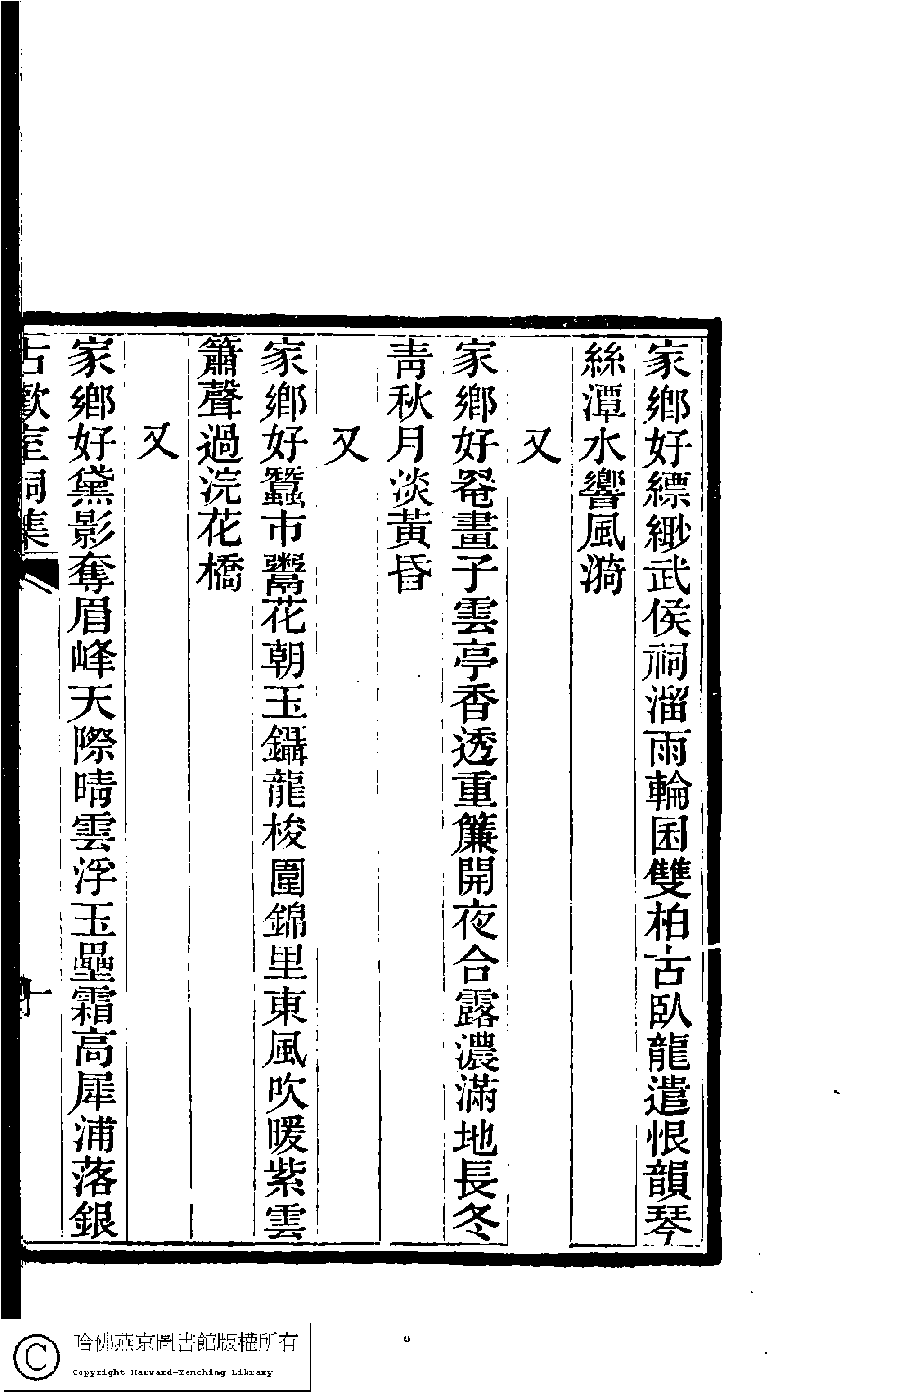 家鄉好縹緲武侯祠溜雨輪囷雙柏古臥龍遣恨韻琴
絲潭水響風漪
又
家鄉好罨畫子雲亭香透重簾開夜合露濃滿地長冬
靑秋月淡黃昏
又
家鄉好蠶市鬻花朝玉鑷龍梭圍錦里東風吹暖紫雲
簫聲過浣花橋
又
家鄉好黛影奪眉峰天際晴雲浮玉壘霜高犀浦落銀
古歡室詞集
十
哈佛燕京圖書館版權所有
Copyright Harvard-Yenching Library